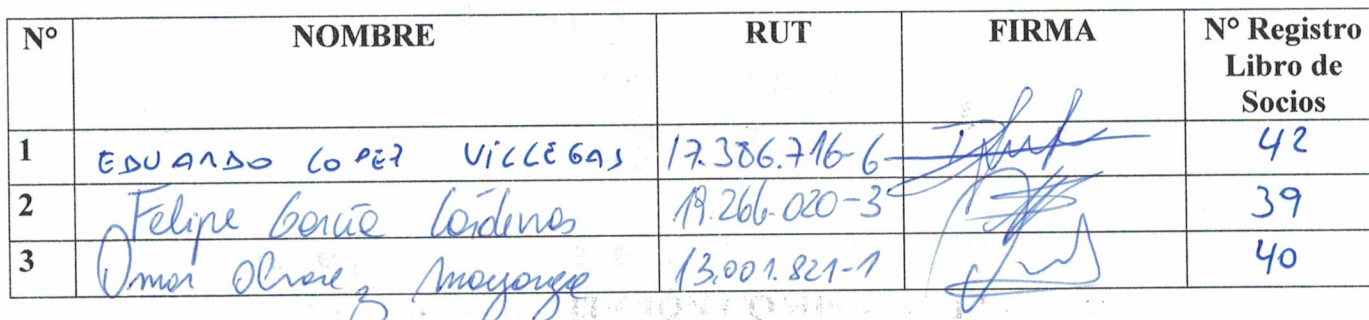 N° NOMBRE RUT FIRMA N° Registro
Libro de
Socios
1 EDUARDO LOPEZ VILLEGAS 17.386.716-6 42
2 Felipe García Cárdenas 19.266.020-3 39
3 Omar 13.001.821-1 40